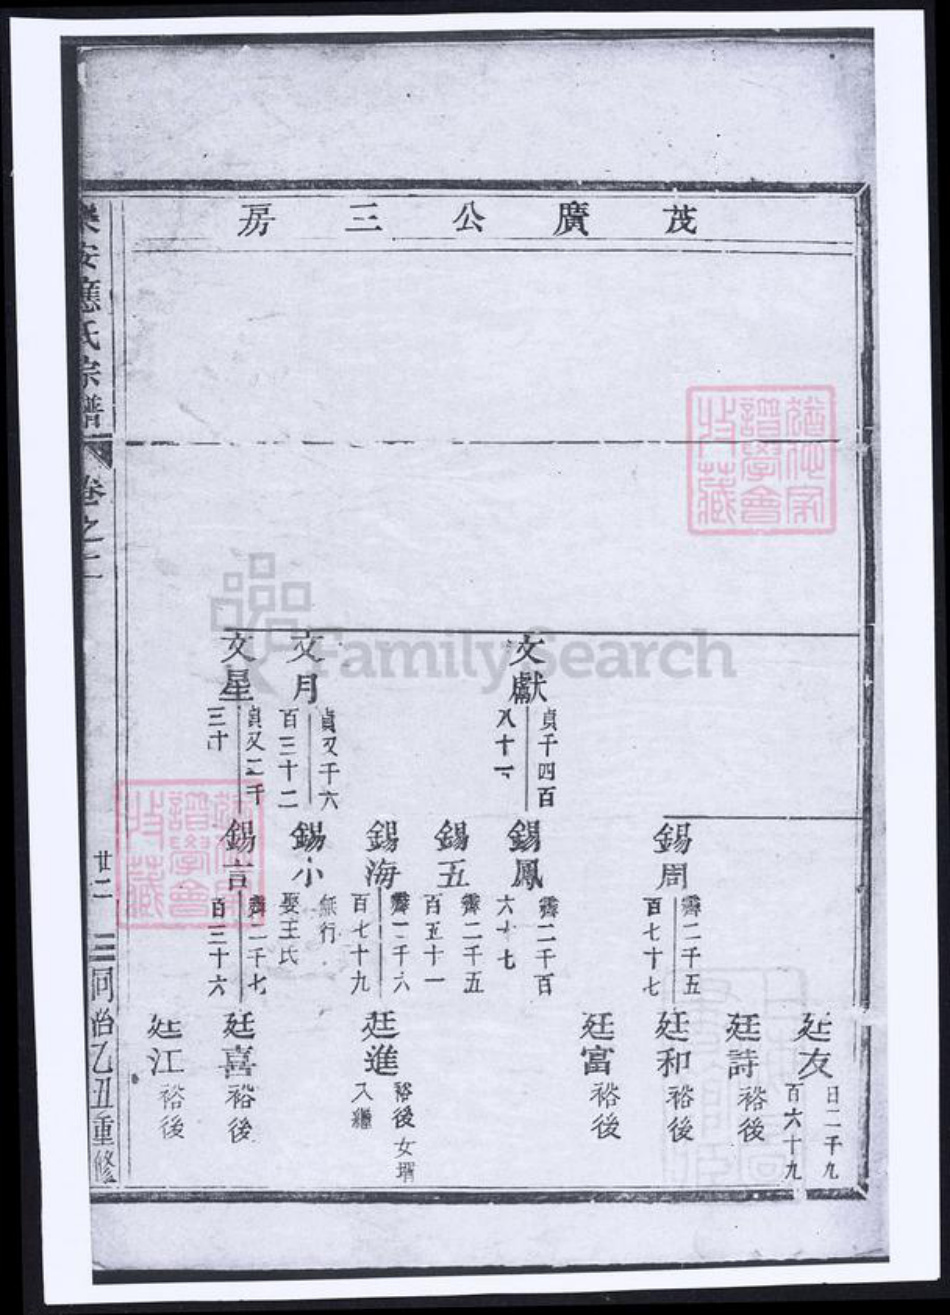 茂廣公三房
文獻
貞千四百
八十一
文月
貞又千六
百三十二
文星
貞又二千
三十
錫周
霽二千五
百七十七
錫鳳
霽二千百
六十七
錫五
霽二千五
百五十一
錫海
霽二千六
百七十九
錫小
無行
娶王氏
錫言
霽二千七
百三十六
廷友
日二千九
百六十九
廷詩 裕後
廷和 裕後
廷富 裕後
廷進
裕後 女壻
入繼
廷喜 裕後
廷江 裕後
樂安應氏宗譜 卷之二
廿二
同治乙丑重修
譜學會
收藏
譜學會
收藏
FamilySearch